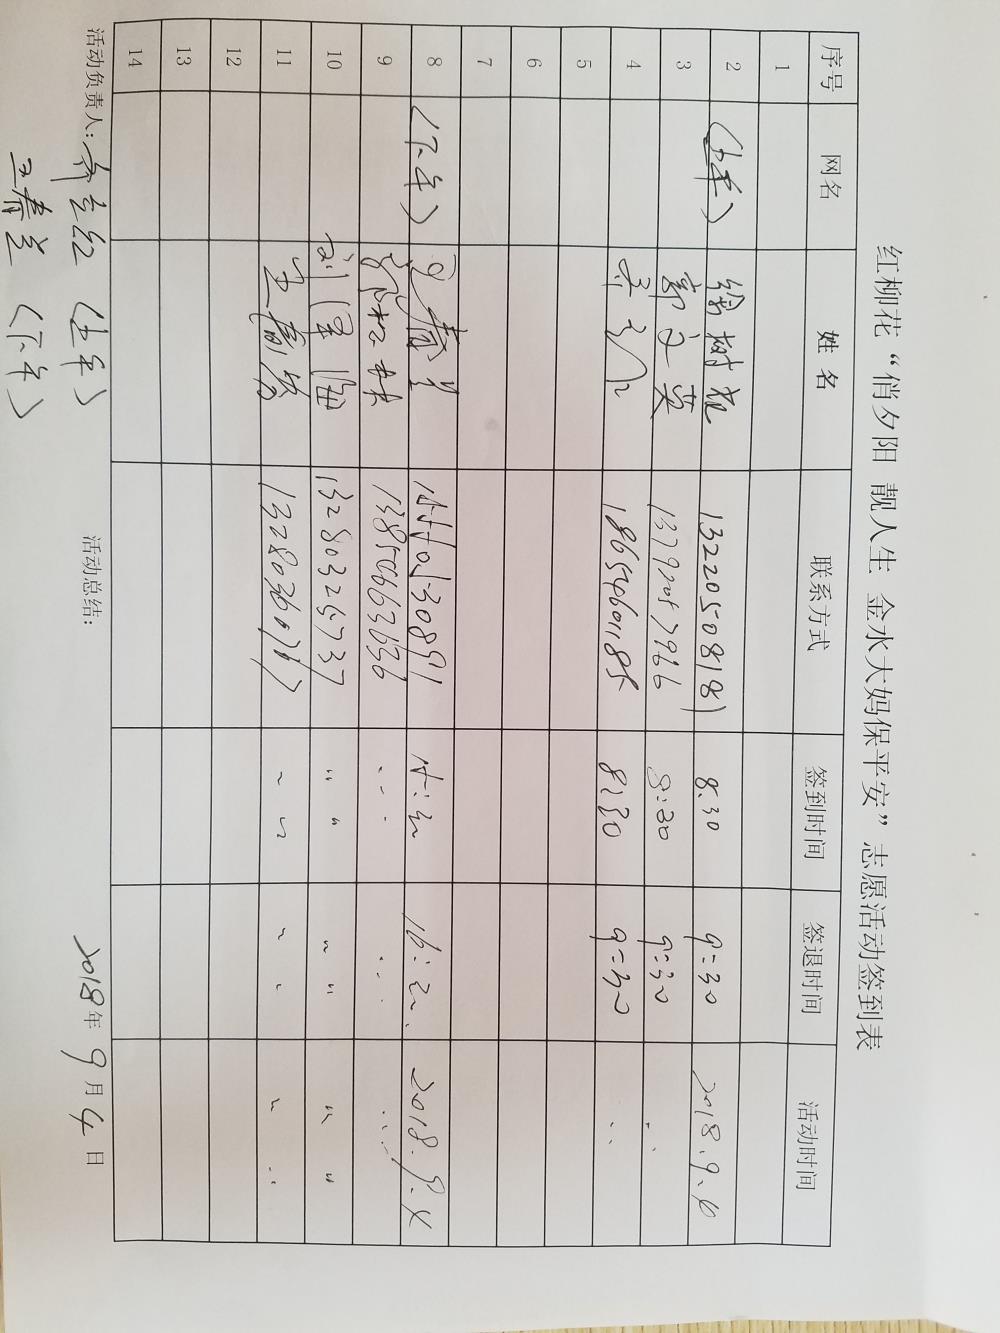 红柳花“俏夕阳 靓人生 金水大妈保平安”志愿活动签到表
序号 网名 姓名 联系方式 签到时间 签退时间 活动时间
1
2 (上午) 徐树振 13220508181 8:30 9:30 2018.9.
3 郭文英 13792057966 8:30 9:30 〃
4 18654601185 8:30 9:30 〃
5
6
7
8 (下午) 王春兰 2018.9.4
9 13850663636 〃 〃 〃
10 13280325737 〃 〃 〃 〃 〃 〃
11 〃 〃 〃 〃 〃 〃
12
13
14
活动负责人: (上午) 活动总结: 2018年9月4日
王春兰 (下午)